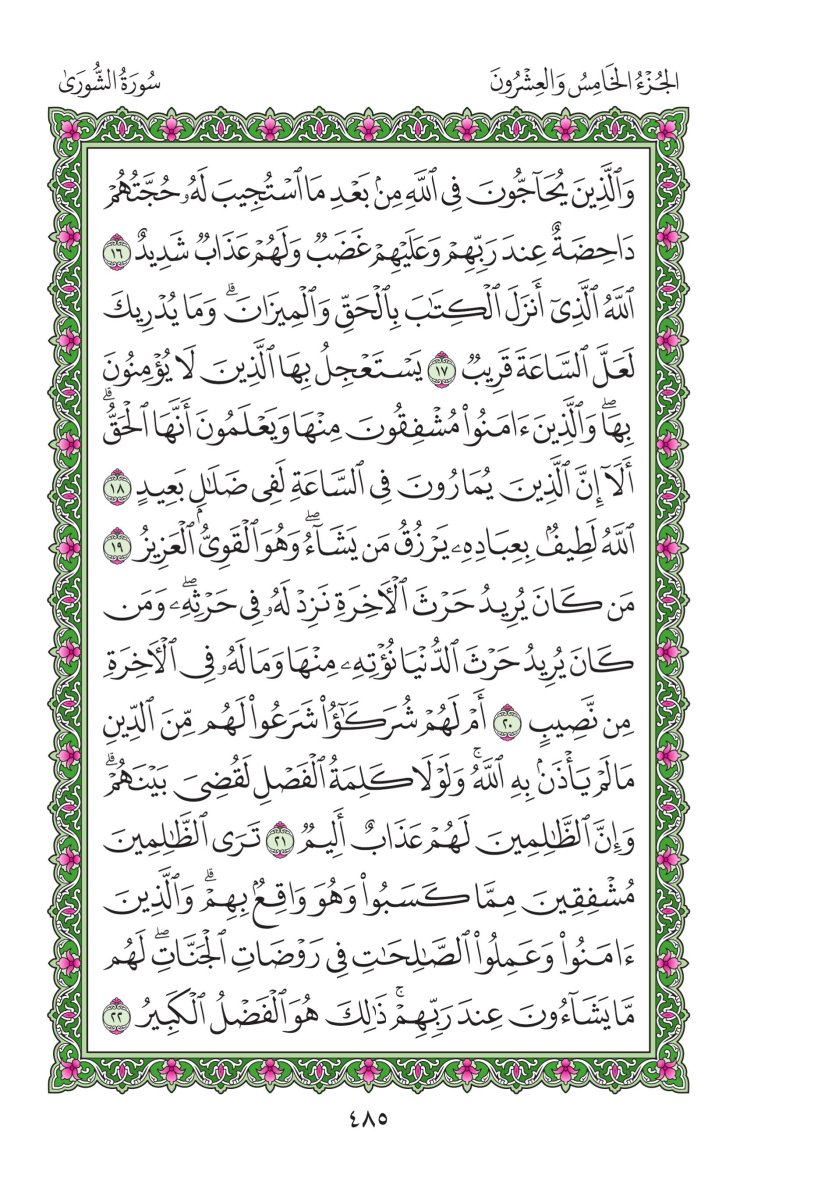 الجُزْءُ الخَامِسُ وَالعِشْرُونَ
سُورَةُ الشُّورَىٰ
وَٱلَّذِينَ يُحَآجُّونَ فِي ٱللَّهِ مِنۢ بَعْدِ مَا ٱسْتُجِيبَ لَهُۥ حُجَّتُهُمْ
دَاحِضَةٌ عِندَ رَبِّهِمْ وَعَلَيْهِمْ غَضَبٌ وَلَهُمْ عَذَابٌ شَدِيدٌ ١٦
ٱللَّهُ ٱلَّذِيٓ أَنزَلَ ٱلْكِتَٰبَ بِٱلْحَقِّ وَٱلْمِيزَانَۗ وَمَا يُدْرِيكَ
لَعَلَّ ٱلسَّاعَةَ قَرِيبٌ ١٧ يَسْتَعْجِلُ بِهَا ٱلَّذِينَ لَا يُؤْمِنُونَ
بِهَاۖ وَٱلَّذِينَ ءَامَنُوا۟ مُشْفِقُونَ مِنْهَا وَيَعْلَمُونَ أَنَّهَا ٱلْحَقُّۗ
أَلَآ إِنَّ ٱلَّذِينَ يُمَارُونَ فِي ٱلسَّاعَةِ لَفِي ضَلَٰلٍۭ بَعِيدٍ ١٨
ٱللَّهُ لَطِيفٌۢ بِعِبَادِهِۦ يَرْزُقُ مَن يَشَآءُۖ وَهُوَ ٱلْقَوِيُّ ٱلْعَزِيزُ ١٩
مَن كَانَ يُرِيدُ حَرْثَ ٱلْءَاخِرَةِ نَزِدْ لَهُۥ فِي حَرْثِهِۦۖ وَمَن
كَانَ يُرِيدُ حَرْثَ ٱلدُّنْيَا نُؤْتِهِۦ مِنْهَا وَمَا لَهُۥ فِي ٱلْءَاخِرَةِ
مِن نَّصِيبٍ ٢٠ أَمْ لَهُمْ شُرَكَٰٓؤُا۟ شَرَعُوا۟ لَهُم مِّنَ ٱلدِّينِ
مَا لَمْ يَأْذَنۢ بِهِ ٱللَّهُۚ وَلَوْلَا كَلِمَةُ ٱلْفَصْلِ لَقُضِيَ بَيْنَهُمْۗ
وَإِنَّ ٱلظَّٰلِمِينَ لَهُمْ عَذَابٌ أَلِيمٌ ٢١ تَرَى ٱلظَّٰلِمِينَ
مُشْفِقِينَ مِمَّا كَسَبُوا۟ وَهُوَ وَاقِعٌۢ بِهِمْۗ وَٱلَّذِينَ
ءَامَنُوا۟ وَعَمِلُوا۟ ٱلصَّٰلِحَٰتِ فِي رَوْضَاتِ ٱلْجَنَّاتِۖ لَهُم
مَّا يَشَآءُونَ عِندَ رَبِّهِمْۚ ذَٰلِكَ هُوَ ٱلْفَضْلُ ٱلْكَبِيرُ ٢٢
٤٨٥